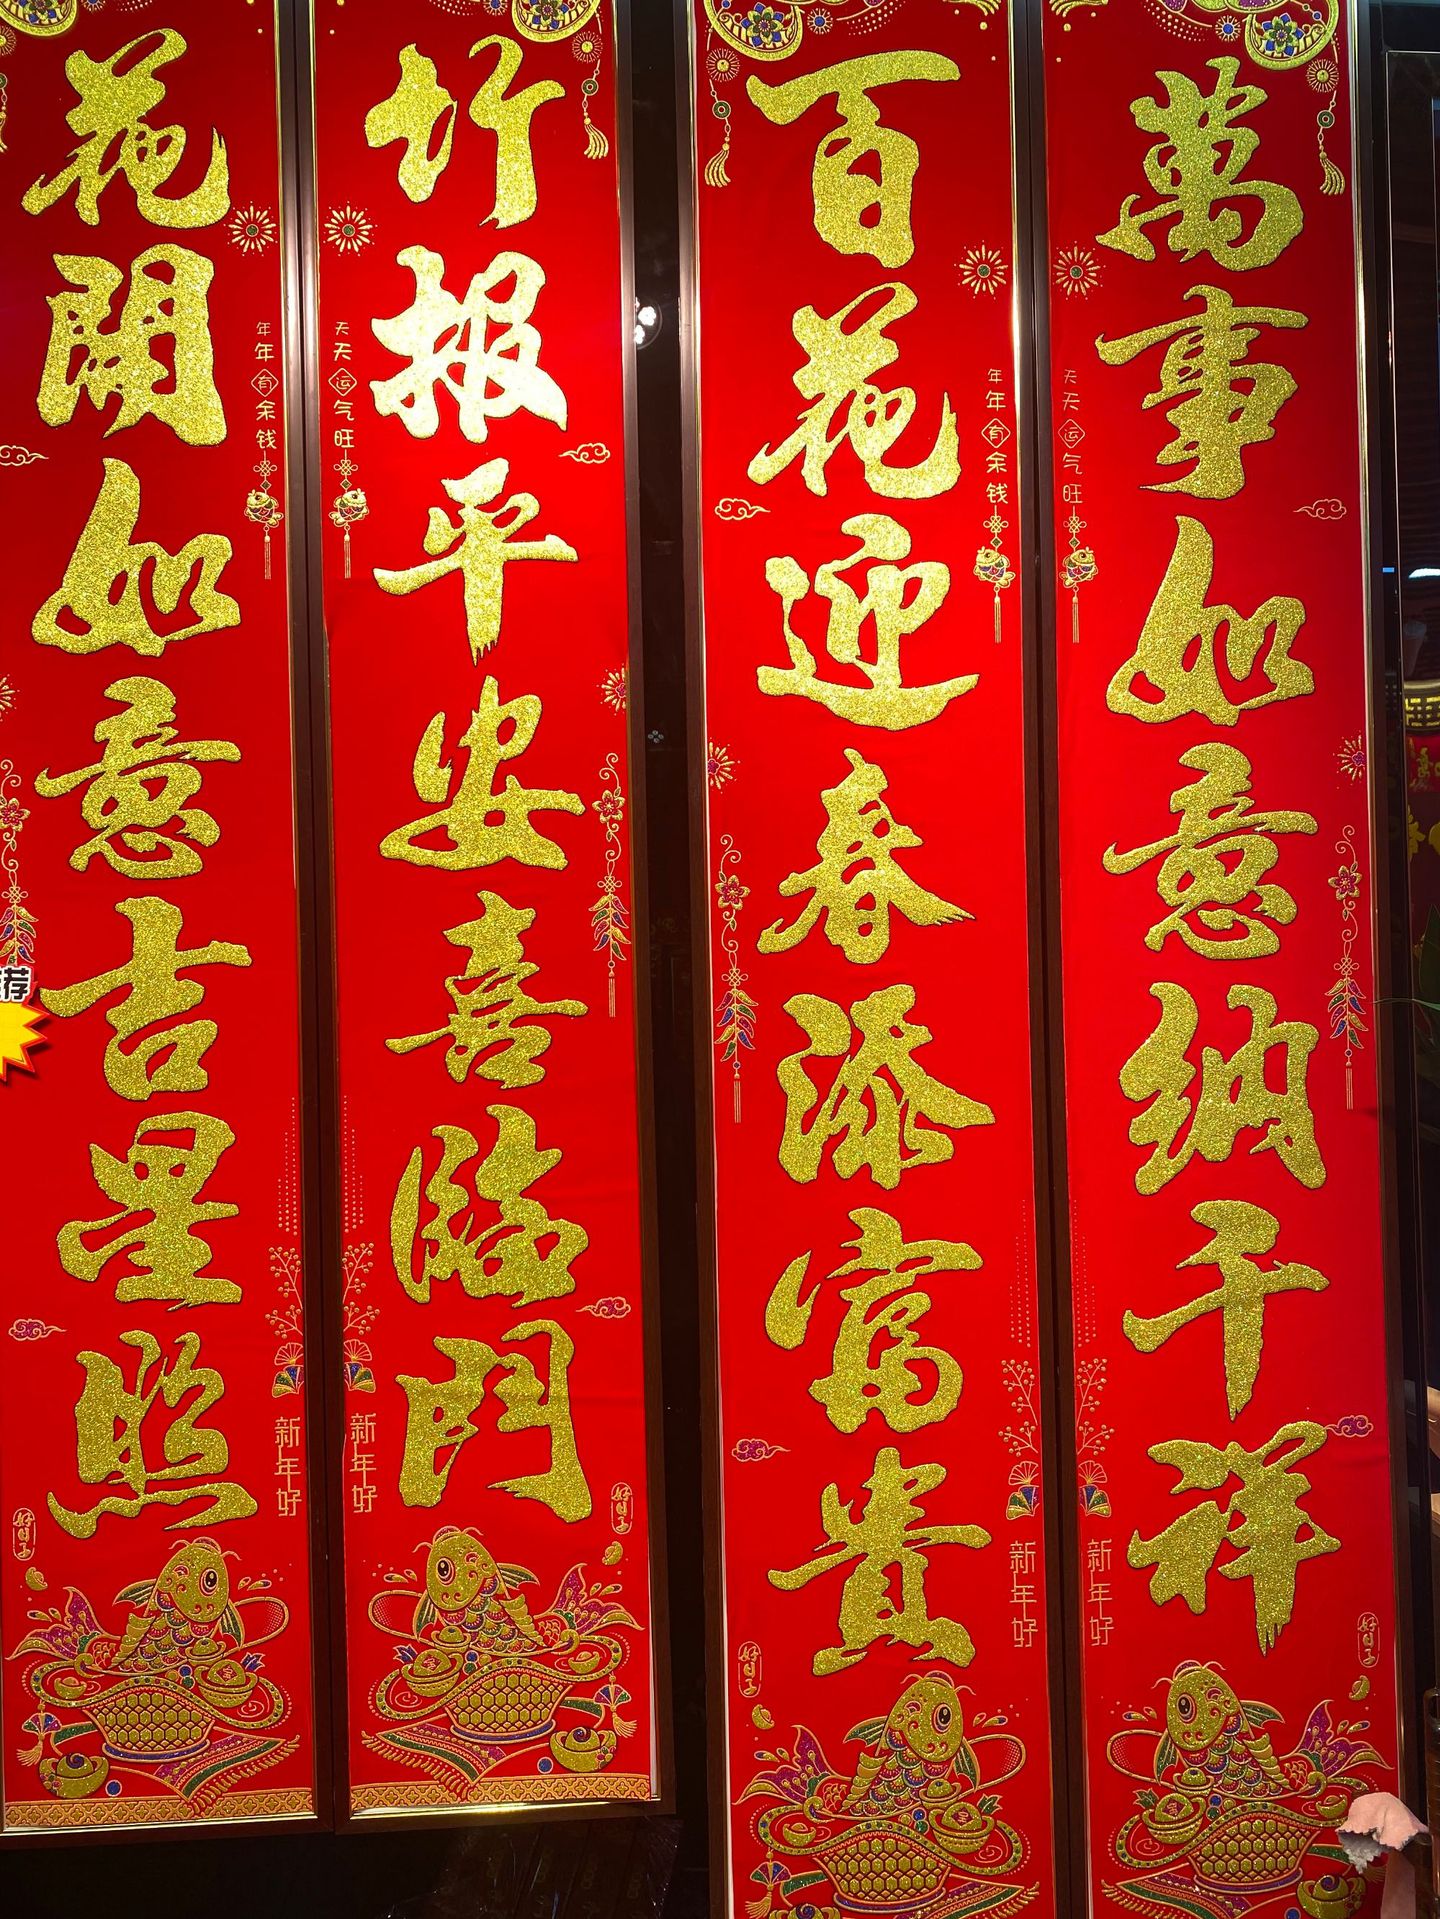 萬事如意納千祥
百花迎春添富貴
竹報平安喜臨門
花開如意吉星照
天天运气旺
年年有余钱
天天运气旺
年年有余钱
新年好
新年好
新年好
新年好
好日子
好日子
好日子
好日子
荐